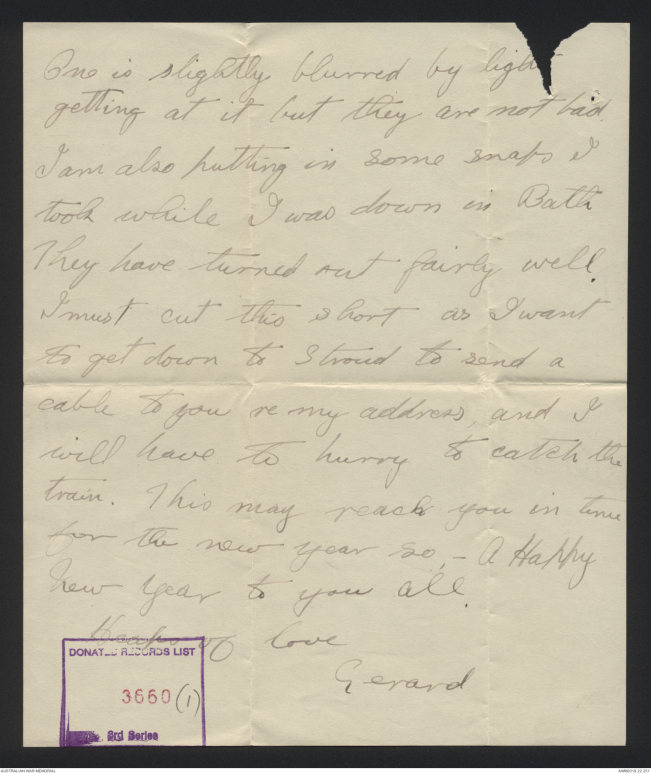 One is slightly blurred by light
getting at it but they are not bad.
I am also putting in some snaps I
took while I was down in Bath
They have turned out fairly well.
I must cut this short as I want
to get down to Stroud to send a
cable to you re my address, and I
will have to hurry to catch the
train. This may reach you in time
for the new year so, – A Happy
New Year to you all.
Heaps of love
Gerard
DONATED RECORDS LIST
3660 (1)
3rd Series
AUSTRALIAN WAR MEMORIAL